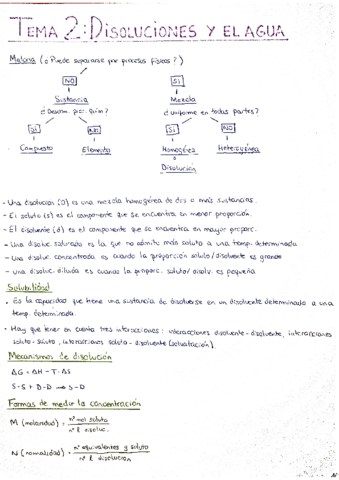 TEMA 2: DISOLUCIONES Y EL AGUA
Materia (¿Puede separarse por procesos físicos?)
NO
SI
Sustancia
Mezcla
¿Descom. por. quím?
¿Uniforme en todas partes?
SI
NO
SI
NO
Compuesto
Elemento
Homogénea
Heterogénea
Disolución
- Una disolución (D) es una mezcla homogénea de dos o más sustancias.
- El soluto (s) es el componente que se encuentra en menor proporción.
- El disolvente (d) es el componente que se encuentra en mayor proporc.
- Una disoluc saturada es la que no admite más soluto a una temp. determinada
- Una disoluc. concentrada es cuando la proporción soluto/disolvente es grande
- Una disoluc. diluida es cuando la proporc. soluto/disolv. es pequeña
Solubilidad
- Es la capacidad que tiene una sustancia de disolverse en un disolvente determinado a una
temp. determinada.
- Hay que tener en cuenta tres interacciones: interacciones disolvente-disolvente, interacciones
soluto-soluto, interacciones soluto-disolvente (solvatación).
Mecanismos de disolución
ΔG = ΔH - T·ΔS
S-S + D-D → S-D
Formas de medir la concentración
M (molaridad) = nº mol soluto
nº l disoluc.
N (normalidad) = nº equivalentes soluto
nº l disolución